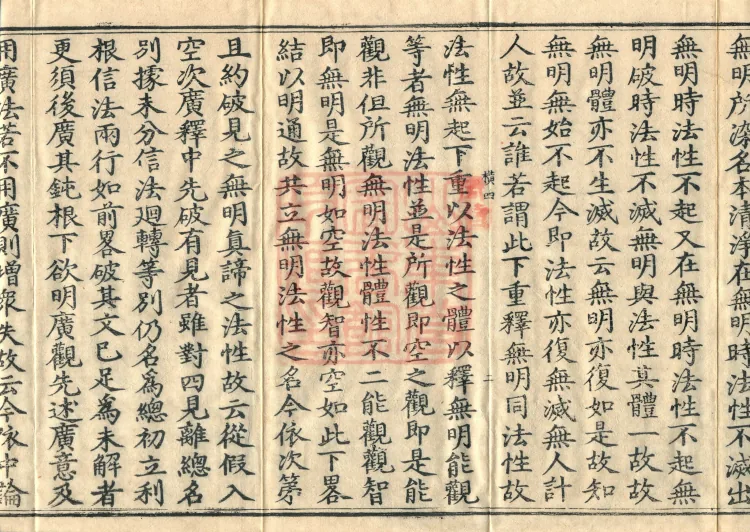 無明所染名本清淨在無明時法性不滅出
無明時法性不起又在無明時法性不起無
明破時法性不滅無明與法性其體一故故
無明體亦不生滅故云無明亦復如是故知
無明無始不起今即法性亦復無滅無人計
人故並云誰若謂此下重釋無明同法性故
橫四
二
法性無起下重以法性之體以釋無明能觀
等者無明法性並是所觀即空之觀即是能
觀非但所觀無明法性體性不二能觀觀智
即無明是無明如空故觀智亦空如此下畧
結以明通故共立無明法性之名今依次第
且約破見之無明真諦之法性故云從假入
空次廣釋中先破有見者雖對四見離總名
別據未分信法迴轉等別仍名為總初立利
根信法兩行如前畧破其文已足為未解者
更須後廣其鈍根下欲明廣觀先述廣意及
用廣法若不用廣則增報失故云今依中論